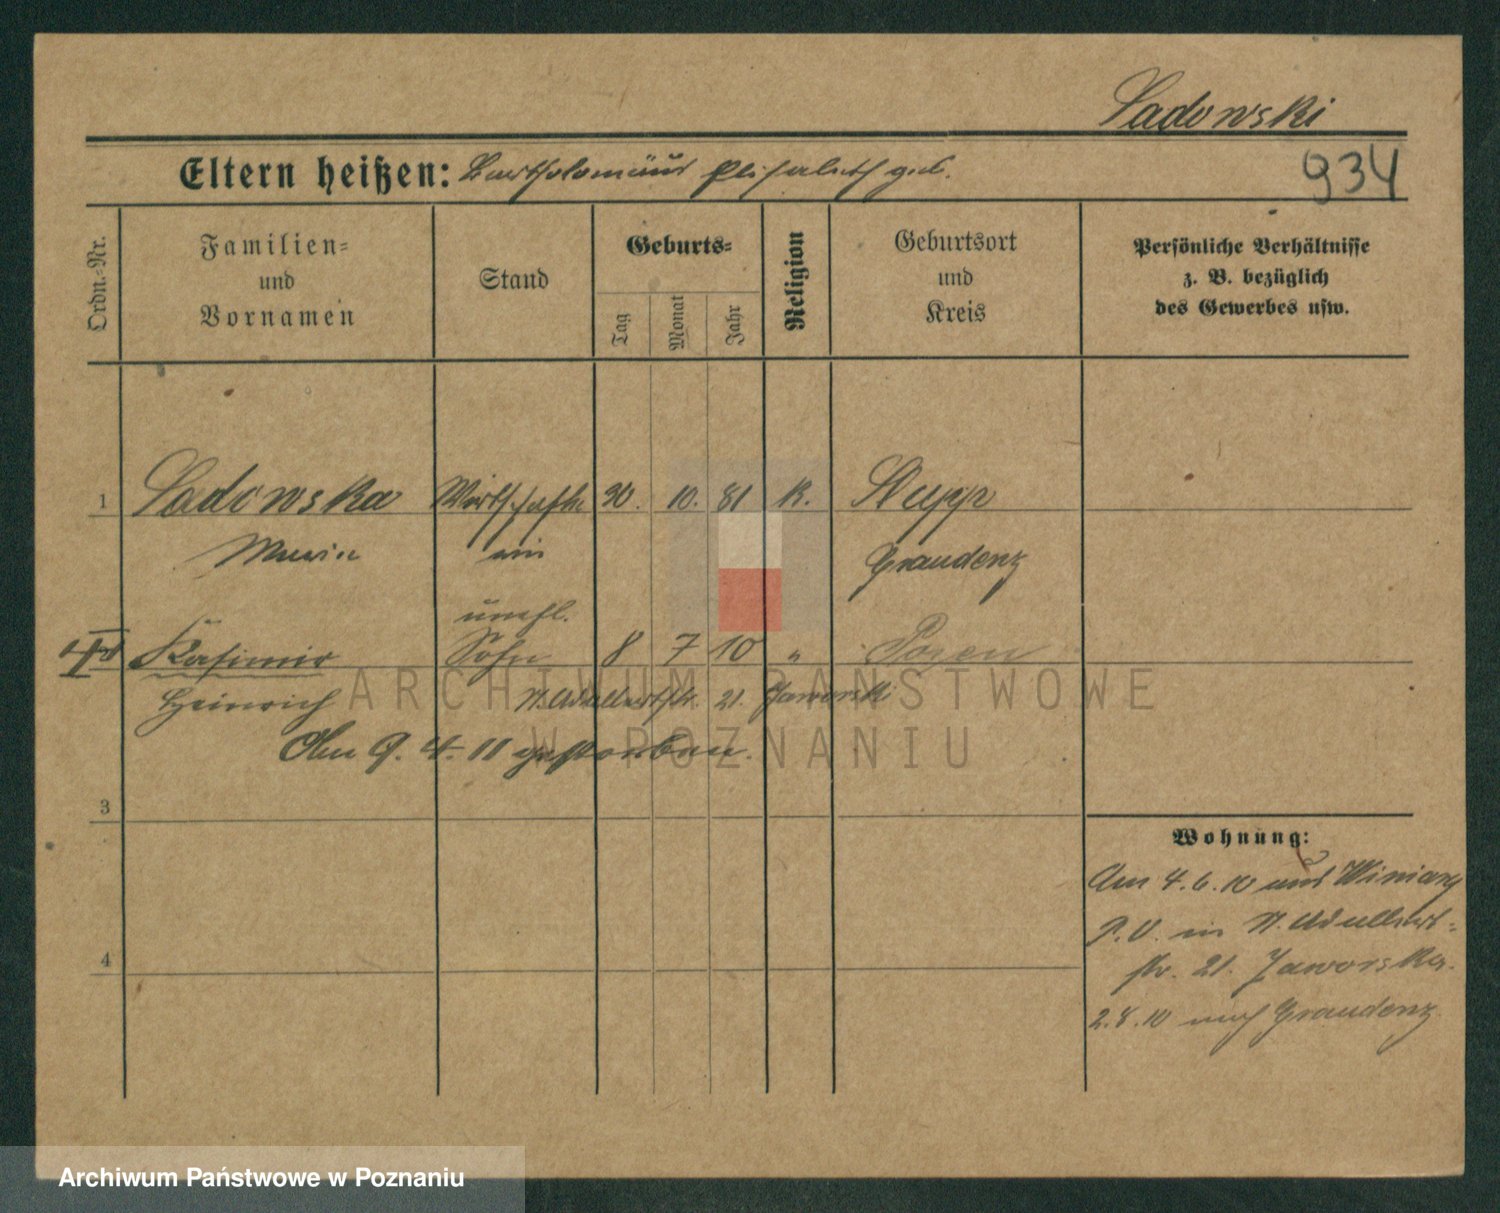 Sadowski
934
Eltern heißen: Bartholomäus Elisabeth geb.
Ordn.-Nr.
Familien-
und
Vornamen
Stand
Geburts-
Tag
Monat
Jahr
Religion
Geburtsort
und
Kreis
Persönliche Verhältnisse
z. B. bezüglich
des Gewerbes usw.
1 Sadowska Wirtschafte 30. 10. 81 K. Stupp
Maria rin Graudenz
unehl.
Kasimir Sohn 8 7 10 " Posen
Heinrich St. Adalbertstr. 21. Jaworski
Am 9. 4. 11 gestorben.
3
4
Wohnung:
Am 4.6.10 aus Winiary
P.O. in St. Adalbert-
str. 21. Jaworska.
2.8.10 nach Graudenz.
ARCHIWUM PAŃSTWOWE
W POZNANIU
Archiwum Państwowe w Poznaniu